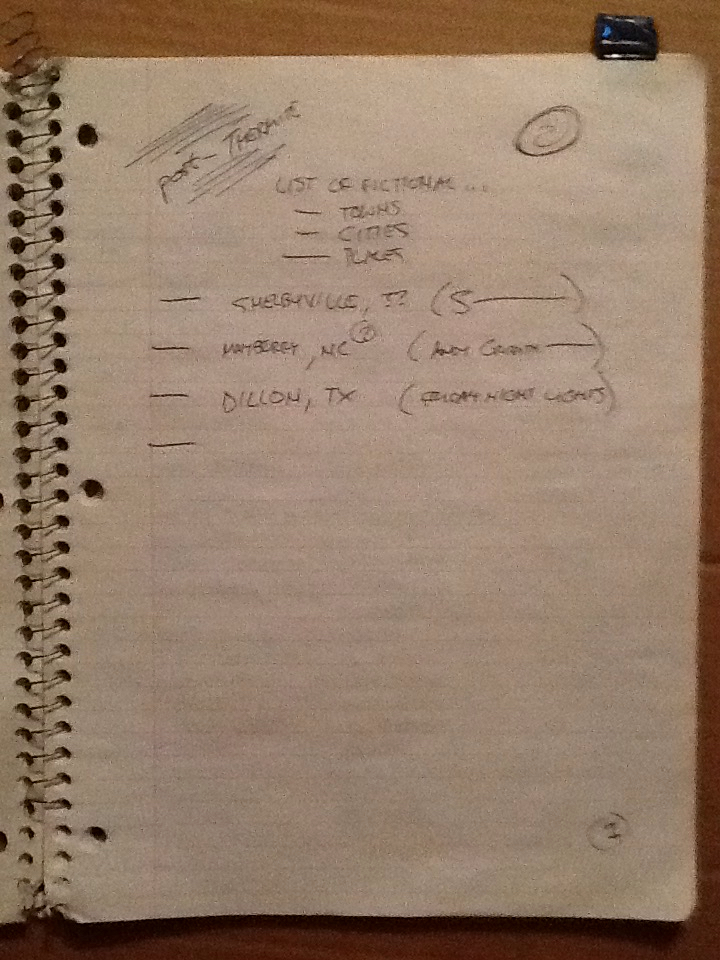 POST-THERMITE
2
LIST OF FICTIONAL...
— TOWNS
— CITIES
— PLACES
— SHELBYVILLE, ?? (S———)
— MAYBERRY, NC ? (ANDY GRIFFITH —)
— DILLON, TX (FRIDAY NIGHT LIGHTS)
—
2